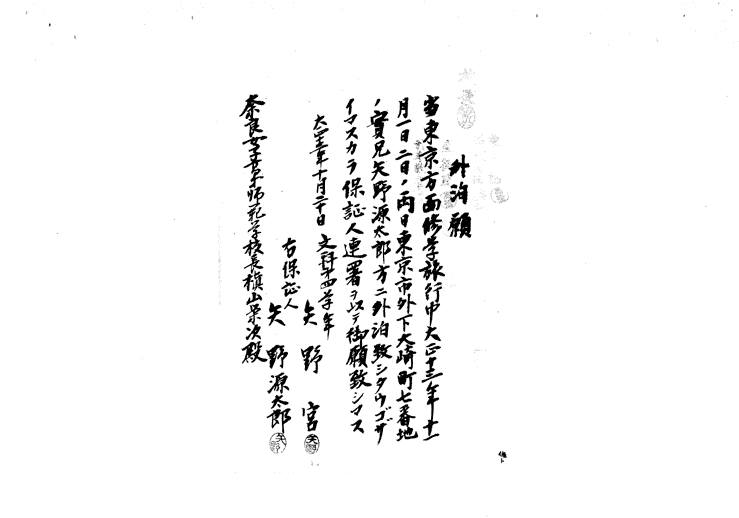 外泊願
当東京方面修学旅行中大正十三年十一
月一日二日ノ両日東京市外下大崎町七番地
ノ實兄矢野源太郎方ニ外泊致シタウゴザ
イマスカラ保証人連署ヲ以テ御願致シマス
大正十三年十月二十日
文科第四学年
矢野 宮
右保証人
矢野源太郎
奈良女子高等師範学校長槇山栄次殿